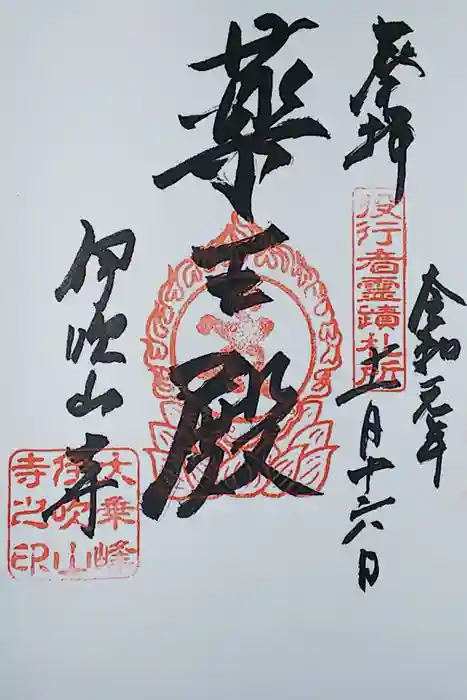 奉拝
役行者霊蹟札所
令和元年
十一月十六日
薬王殿
伊吹山寺
大乗峰
伊吹山
寺之印